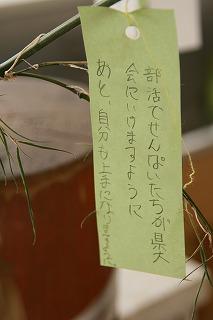 部活でせんぱいたちが県大
会にいけますように
あと、自分も上手になりますように